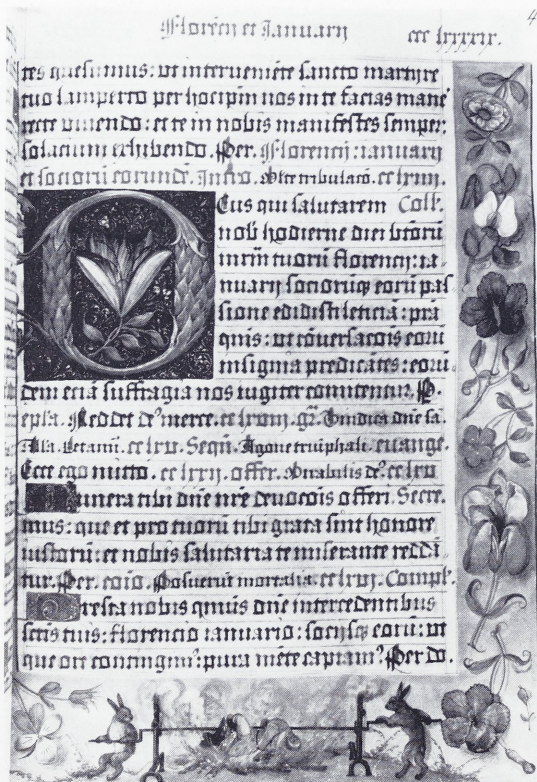 Florencij et Januarij ccc lxxxxix.
4
tes quesumus: ut interveniēte sancto martyre
tuo lamperto per hoc ipm nos in te facias mane
recte vivendo: et te in nobis manifestes semper:
solacium exhibendo. Per. Florencij: ianuarij
et sociorū eorundē. Intro. Multe tribulacō.
Eus qui salutarem Coll.
nob hodierne diei btorū
mrm̄ tuorū florencij: ia
nuarij sociorūqꝫ eorū pas
sione edidisti leticiā: pra
quis: ut cōversacōis eorū
insignia predicātes: eorū
dem eciā suffragia nos iugiter comitentur. P.
epl'a. Reddet de' merce. gᷓ. Vindica dn̄e sā.
Alla. Letamī. cc lxv. Sequ. Agone triūphali. euange.
Ecce ego mitto. cc lxxij. offer. Mirabilis de' cc lxv
Munera tibi dn̄e nr̄e devocōis offeri Secre.
mus: que et pro tuorū tibi grata sint honore
iustorū: et nobis salutaria te miserante reddā
tur. Per. cōio. Posuerūt mortalia. Comple.
Presta nobis qm̄us dn̄e intercedentibus
sctis tuis: florencio ianuario: socijsqꝫ eorū: ut
que ore contingim': pura mēte capiam' Per do.